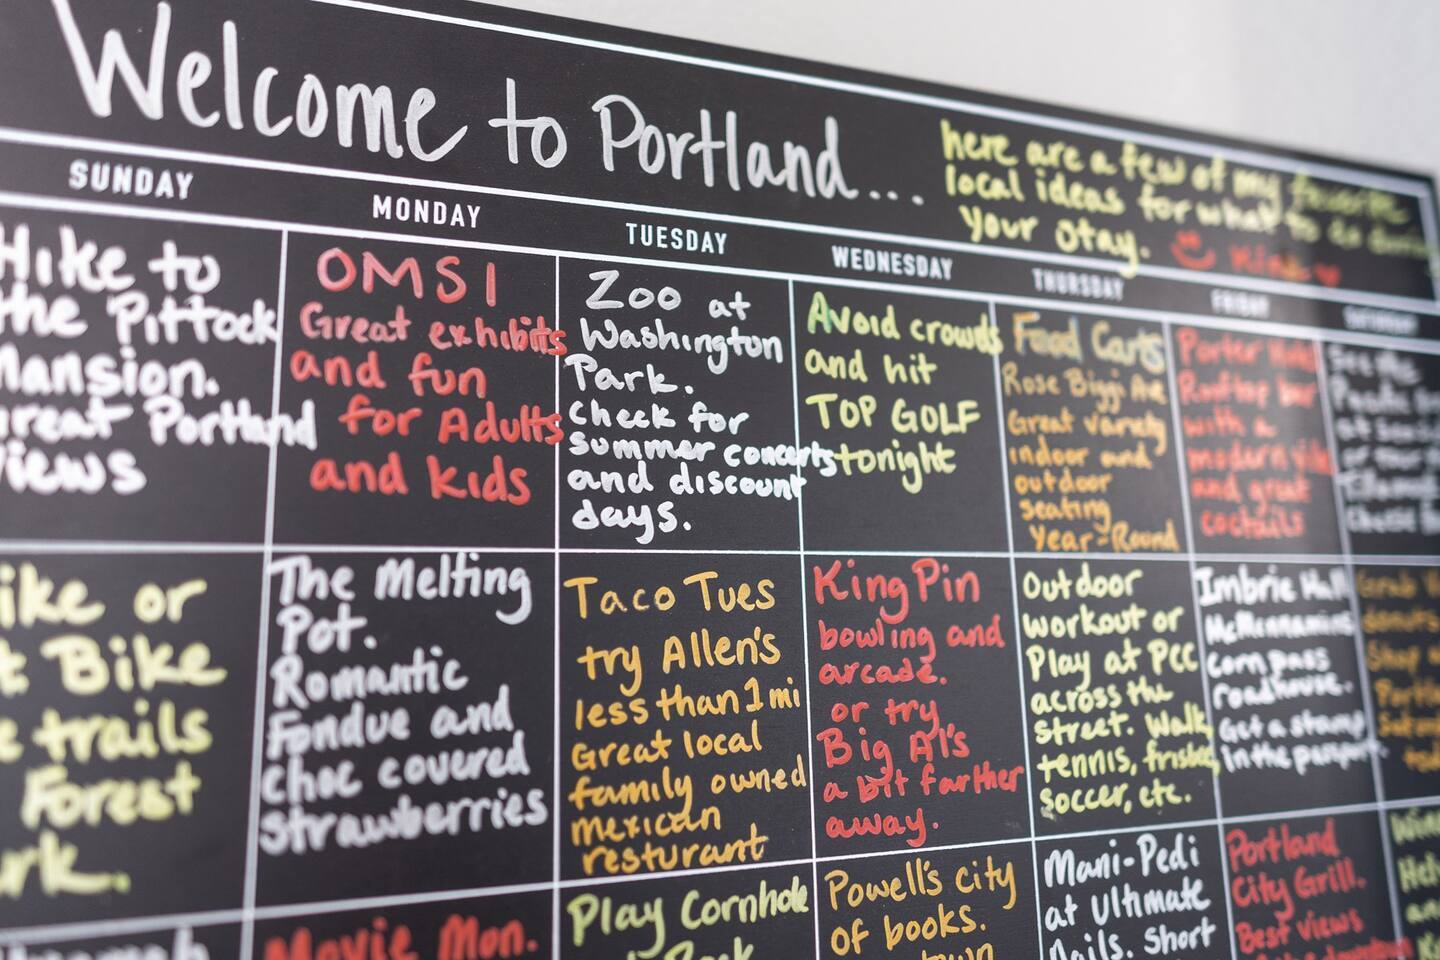 Welcome to Portland...
here are a few of my favorite
local ideas for what to do during
your stay.
SUNDAY
MONDAY
TUESDAY
WEDNESDAY
THURSDAY
FRIDAY
SATURDAY
Hike to
the Pittock
Mansion.
Great Portland
views
OMSI
Great exhibits
and fun
for Adults
and kids
Zoo at
Washington
Park.
Check for
summer concerts
and discount
days.
Avoid crowds
and hit
TOP GOLF
tonight
Food Carts
Rose Biggi Ave
Great variety
indoor and
outdoor
seating
Year-Round
Porter
Rooftop bar
with a
modern
and great
coctails
See the
or
ike or
Bike
trails
Forest
ark.
The Melting
Pot.
Romantic
Fondue and
choc covered
strawberries
Taco Tues
try Allen's
less than 1 mi
Great local
family owned
mexican
resturant
King Pin
bowling and
arcade.
or try
Big Al's
a bit farther
away.
Outdoor
workout or
Play at PCC
across the
street. Walk,
tennis, frisbee,
soccer, etc.
Imbrie Hall
McMennamins
Cornpass
roadhouse.
Get a stamp
in the passport.
Grab
donuts
Shop
Movie Mon.
Play Cornhole
Powell's city
of books.
Mani-Pedi
at Ultimate
Nails. Short
Portland
City Grill.
Best views